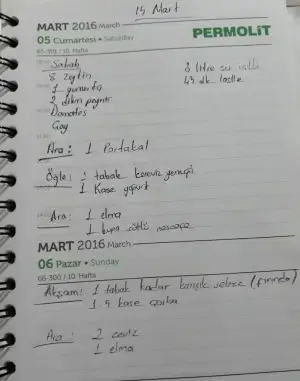 15 Mart
MART 2016 March
PERMOLiT
05 Cumartesi • Saturday
65-301 / 10. Hafta
Sabah
8 zeytin
1 yumurta
2 dilim peynir
Domates
Çay
3 litre su içildi
45 dk.
Ara : 1 Portakal
Öğle : 1 tabak kereviz yemeği
1 Kase yoğurt
Ara : 1 elma
1 kupa sütlü nescafe
MART 2016 March
06 Pazar • Sunday
66-300 / 10. Hafta
Akşam : 1 tabak kadar karışık sebze (fırında)
1.5 kase çorba
Ara : 2 ceviz
1 elma